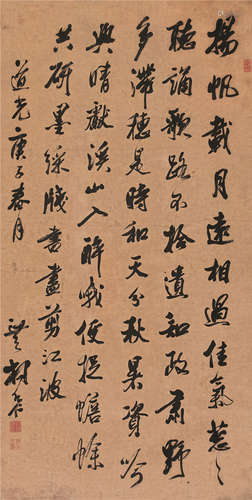 揚帆載月遠相過佳氣葱々
聽誦歌路不拾遺知政肅野
多滯穗是時和天分秋暑資吟
興晴獻溪山入醉哦便捉蟾蜍
共研墨綵牋書畫剪江波
道光庚子春月
樹